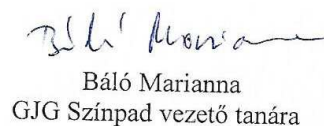 Báló Marianne
Báló Marianna
GJG Színpad vezető tanára